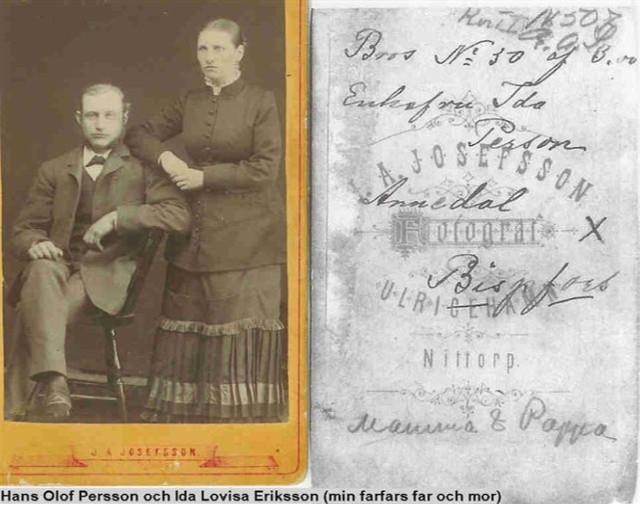 J. A. JOSEFSSON.
N 50
Bros No 50 af 3.00
Enkefru Ida
Person
J. A. JOSEFSSON
Annedal
Fotograf X
Bispfors
ULRICEHAMN
Nittorp.
Mamma & Pappa
Hans Olof Persson och Ida Lovisa Eriksson (min farfars far och mor)